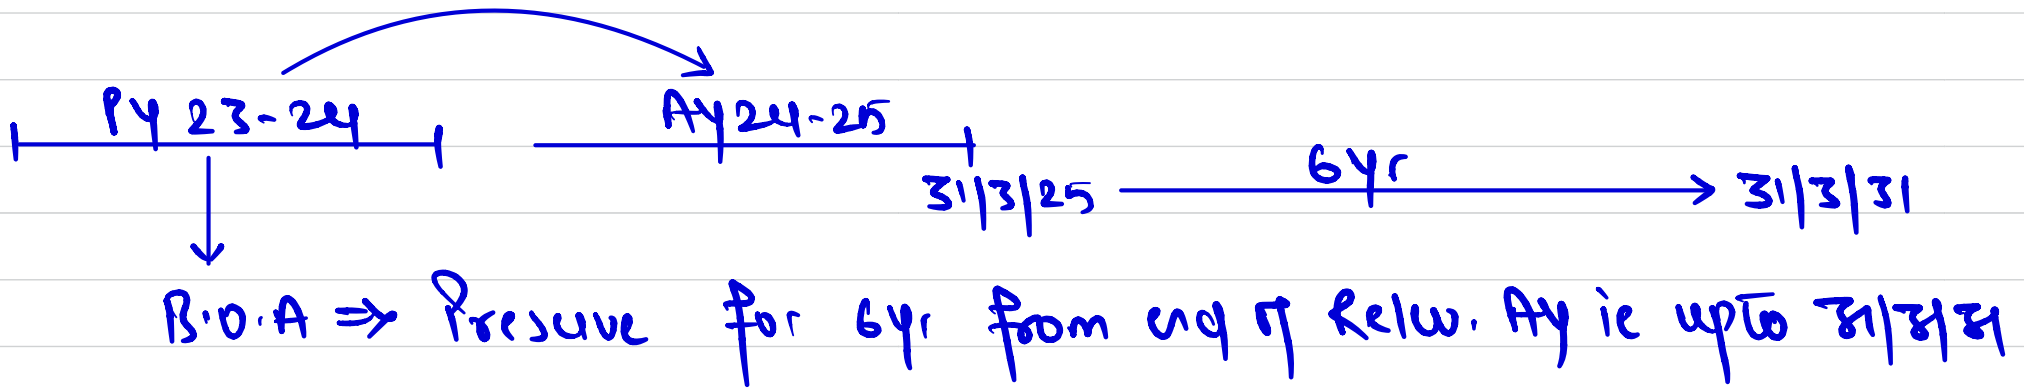 Py 23-24 Ay 24-25
31/3/25 6yr 31/3/31
B.O.A => Preserve for 6yr from end of Relev. Ay ie upto 31/3/31